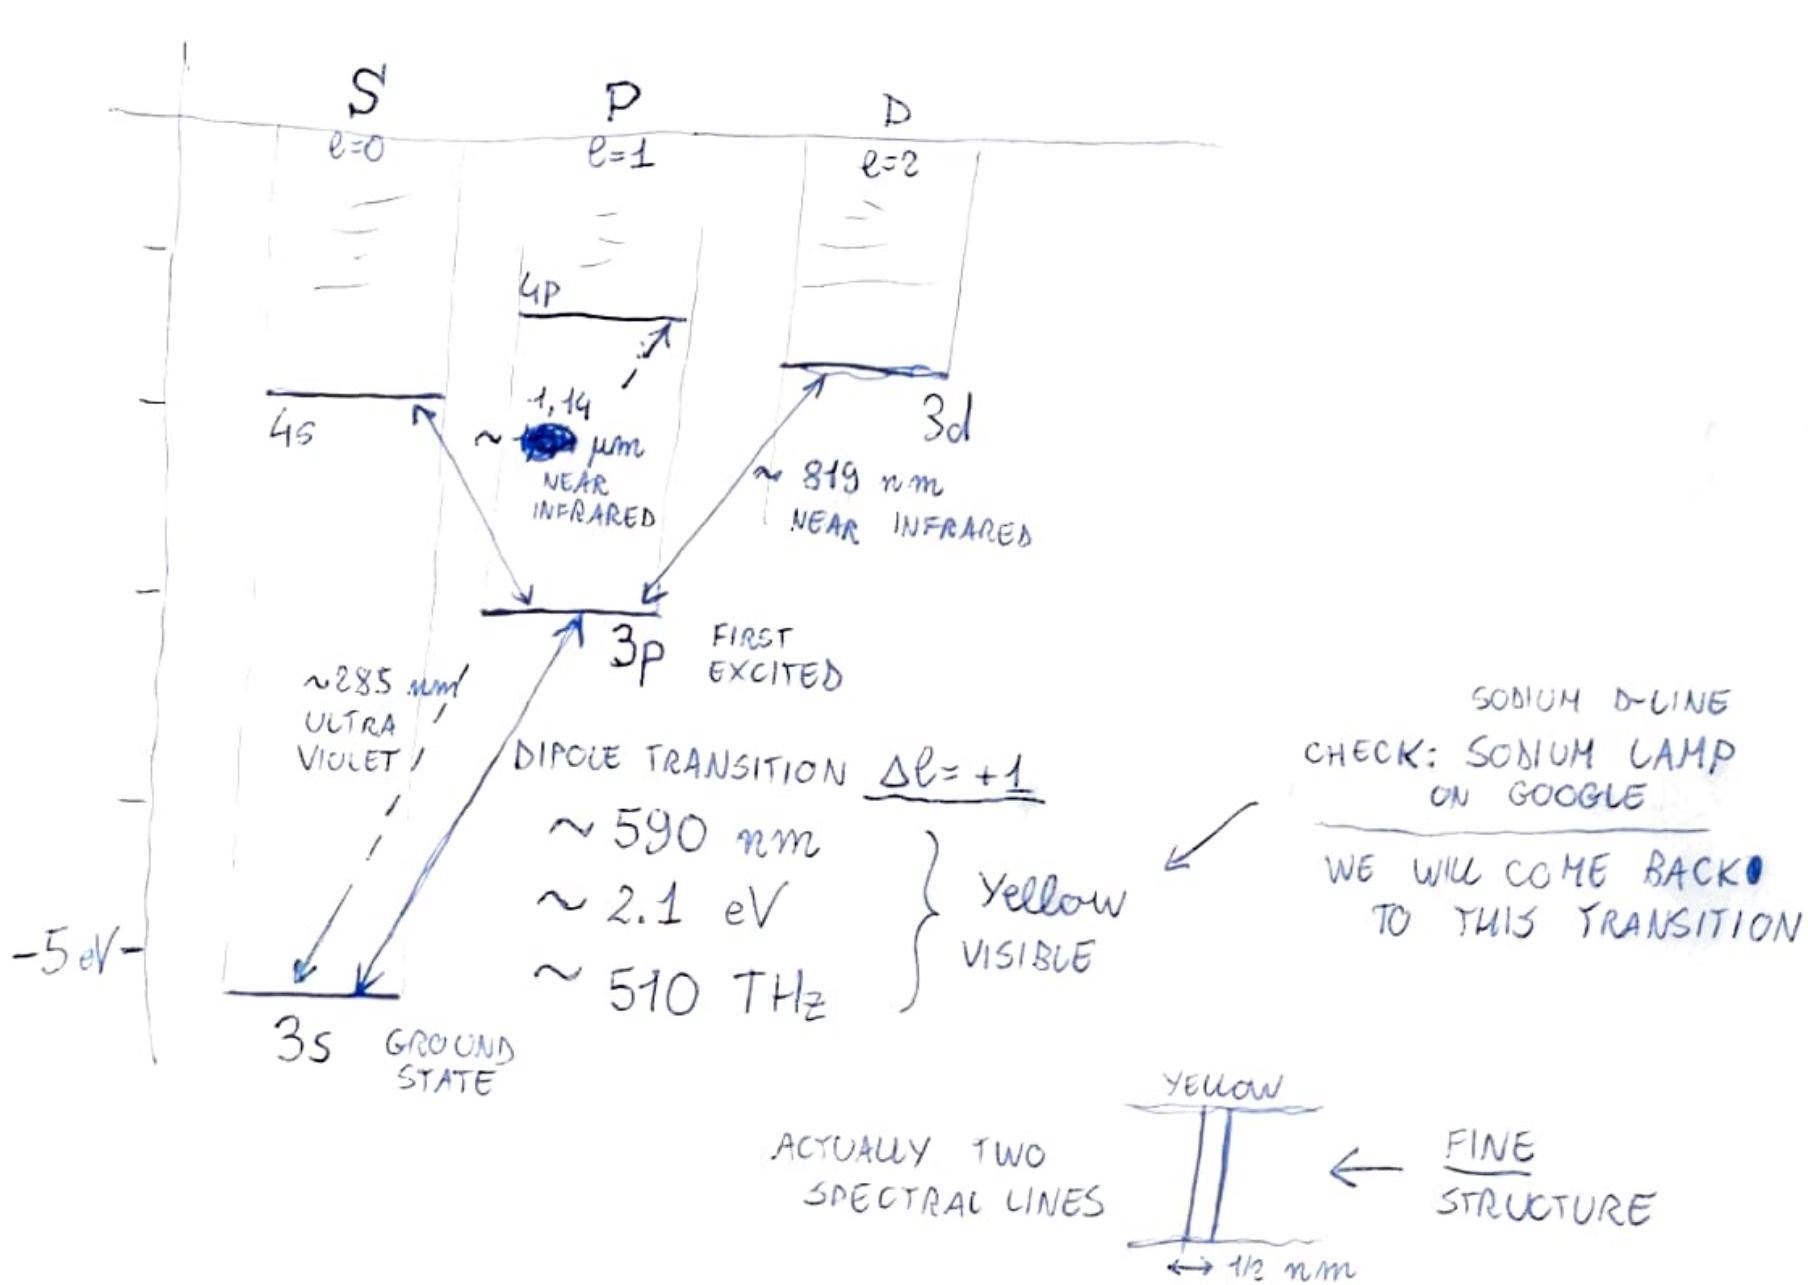 S
P
D
l=0
l=1
l=2
4P
4s
1,14
~ μm
NEAR
INFRARED
3d
~ 819 nm
NEAR INFRARED
3p
FIRST
EXCITED
~285 nm
ULTRA
VIOLET
DIPOLE TRANSITION Δl=+1
~ 590 nm
~ 2.1 eV
~ 510 THz
Yellow
VISIBLE
SODIUM D-LINE
CHECK: SODIUM LAMP
ON GOOGLE
WE WILL COME BACK
TO THIS TRANSITION
-5 eV-
3s
GROUND
STATE
ACTUALLY TWO
SPECTRAL LINES
YELLOW
1/2 nm
FINE
STRUCTURE